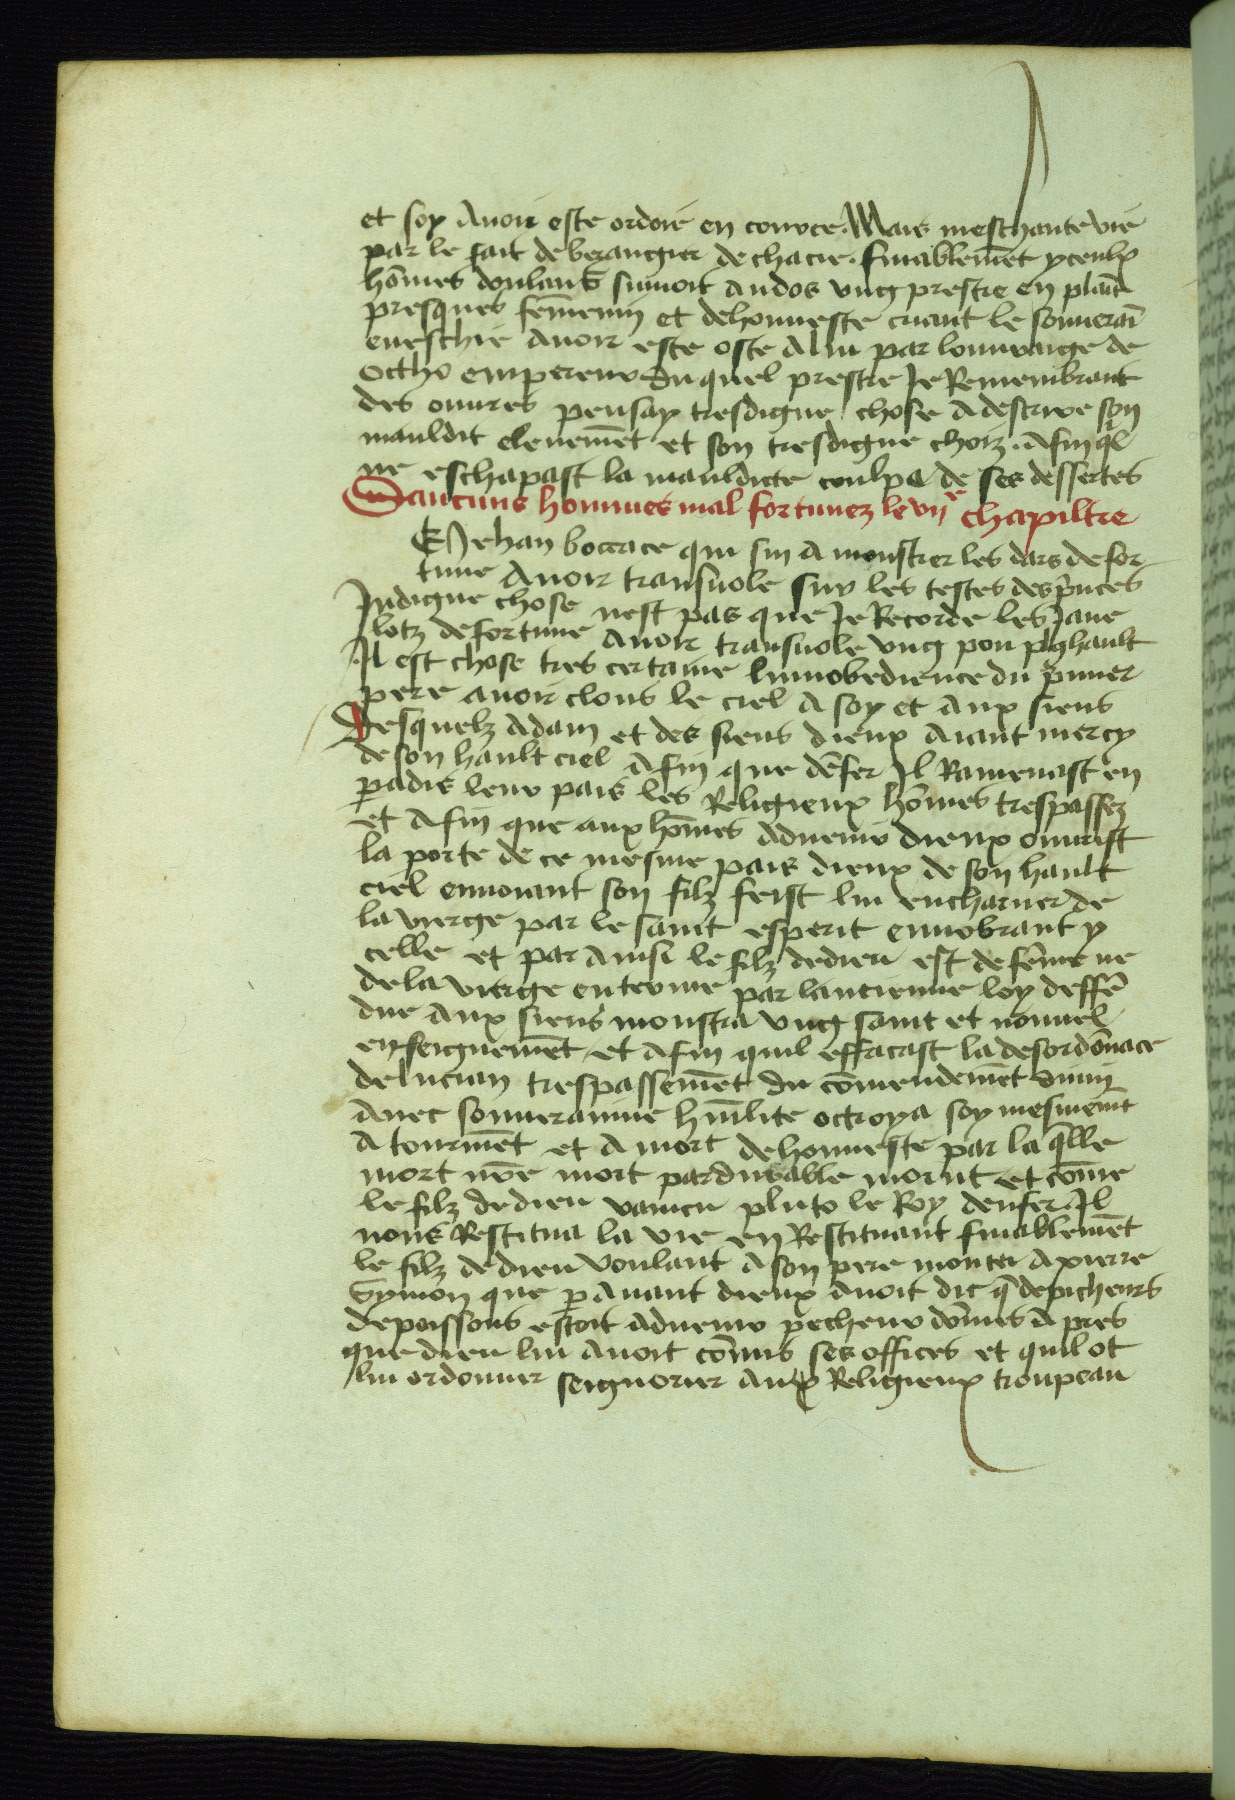 et soy Avoir este ordoie en couvce. Mais meschante vie
par le fait de berangier dechacie. finablemēt yceulx
hōmes doulans suivoit Ando9 ung prestre en plaīte
presques fēmenin et dehonneste criant le souveraī
eveschie Avoir este oste A lui par louuraige de
Octhō empereur Du quel prestre Je Remembrant
des ouvres pensay tresdigne chose A descrire son
mauldit elevemēt et son tresdigne choiz. Afin q̄l
ne eschapast la mauldicte coulpe de ses dessertes
Daucuns hommes mal fortunez le vijᵉ chapiltre
E Jehan boccace qui sui A monstrer les dars de for
tune Avoir transvole sur les testes des p̄nces
Indigne chose nest pas que Je Recorde les Jave
lotz de fortune Avoir transvole ung pou pl9 hault
Il est chose tres certaine linnobedience du p̄mier
pere avoir clous le ciel A soy et Aux siens
Desquelz Adam et des siens dieux Aiant mercy
de son hault ciel Afin que dēfer Il Ramenast en
p̄adis leur pais les Religieux hōmes trespassez
et Afin que aux hōmes Advenir dieux ouvrist
la porte de ce mesme pais dieux de son hault
ciel envoiant son filz feist lui encharner de
la vierge par le saint esperit ennobrant y
celle et par Ainsi le filz de dieu est de fēme ne
de la vierge entevme par lancienne loy deffē
due Aux siens monstra ung saint et nouvel
enseignemēt et Afin quil effacast la desordōnace
de lucian trespassemēt du cōmendemēt divin
Avec souverainne hūilite octroya soy mesmemēt
A tourmēt et A mort dehonneste par la q̄lle
mort nr̄e mort pardurable morut et cōme
le filz de dieu vaincu pluto le Roy denfer Il
nous Restitua la vie en Restituant finablemēt
le filz de dieu voulant A son pere monter A pierre
Symon que p̄ Avant dieux Avoit dit q̄ de picheurs
de poissons estoit Advenir pecheur dōmes Apres
que dieu lui Avoit cōmis ses offices et quil ot
lui ordonner seignorier aux Religieux troupeau